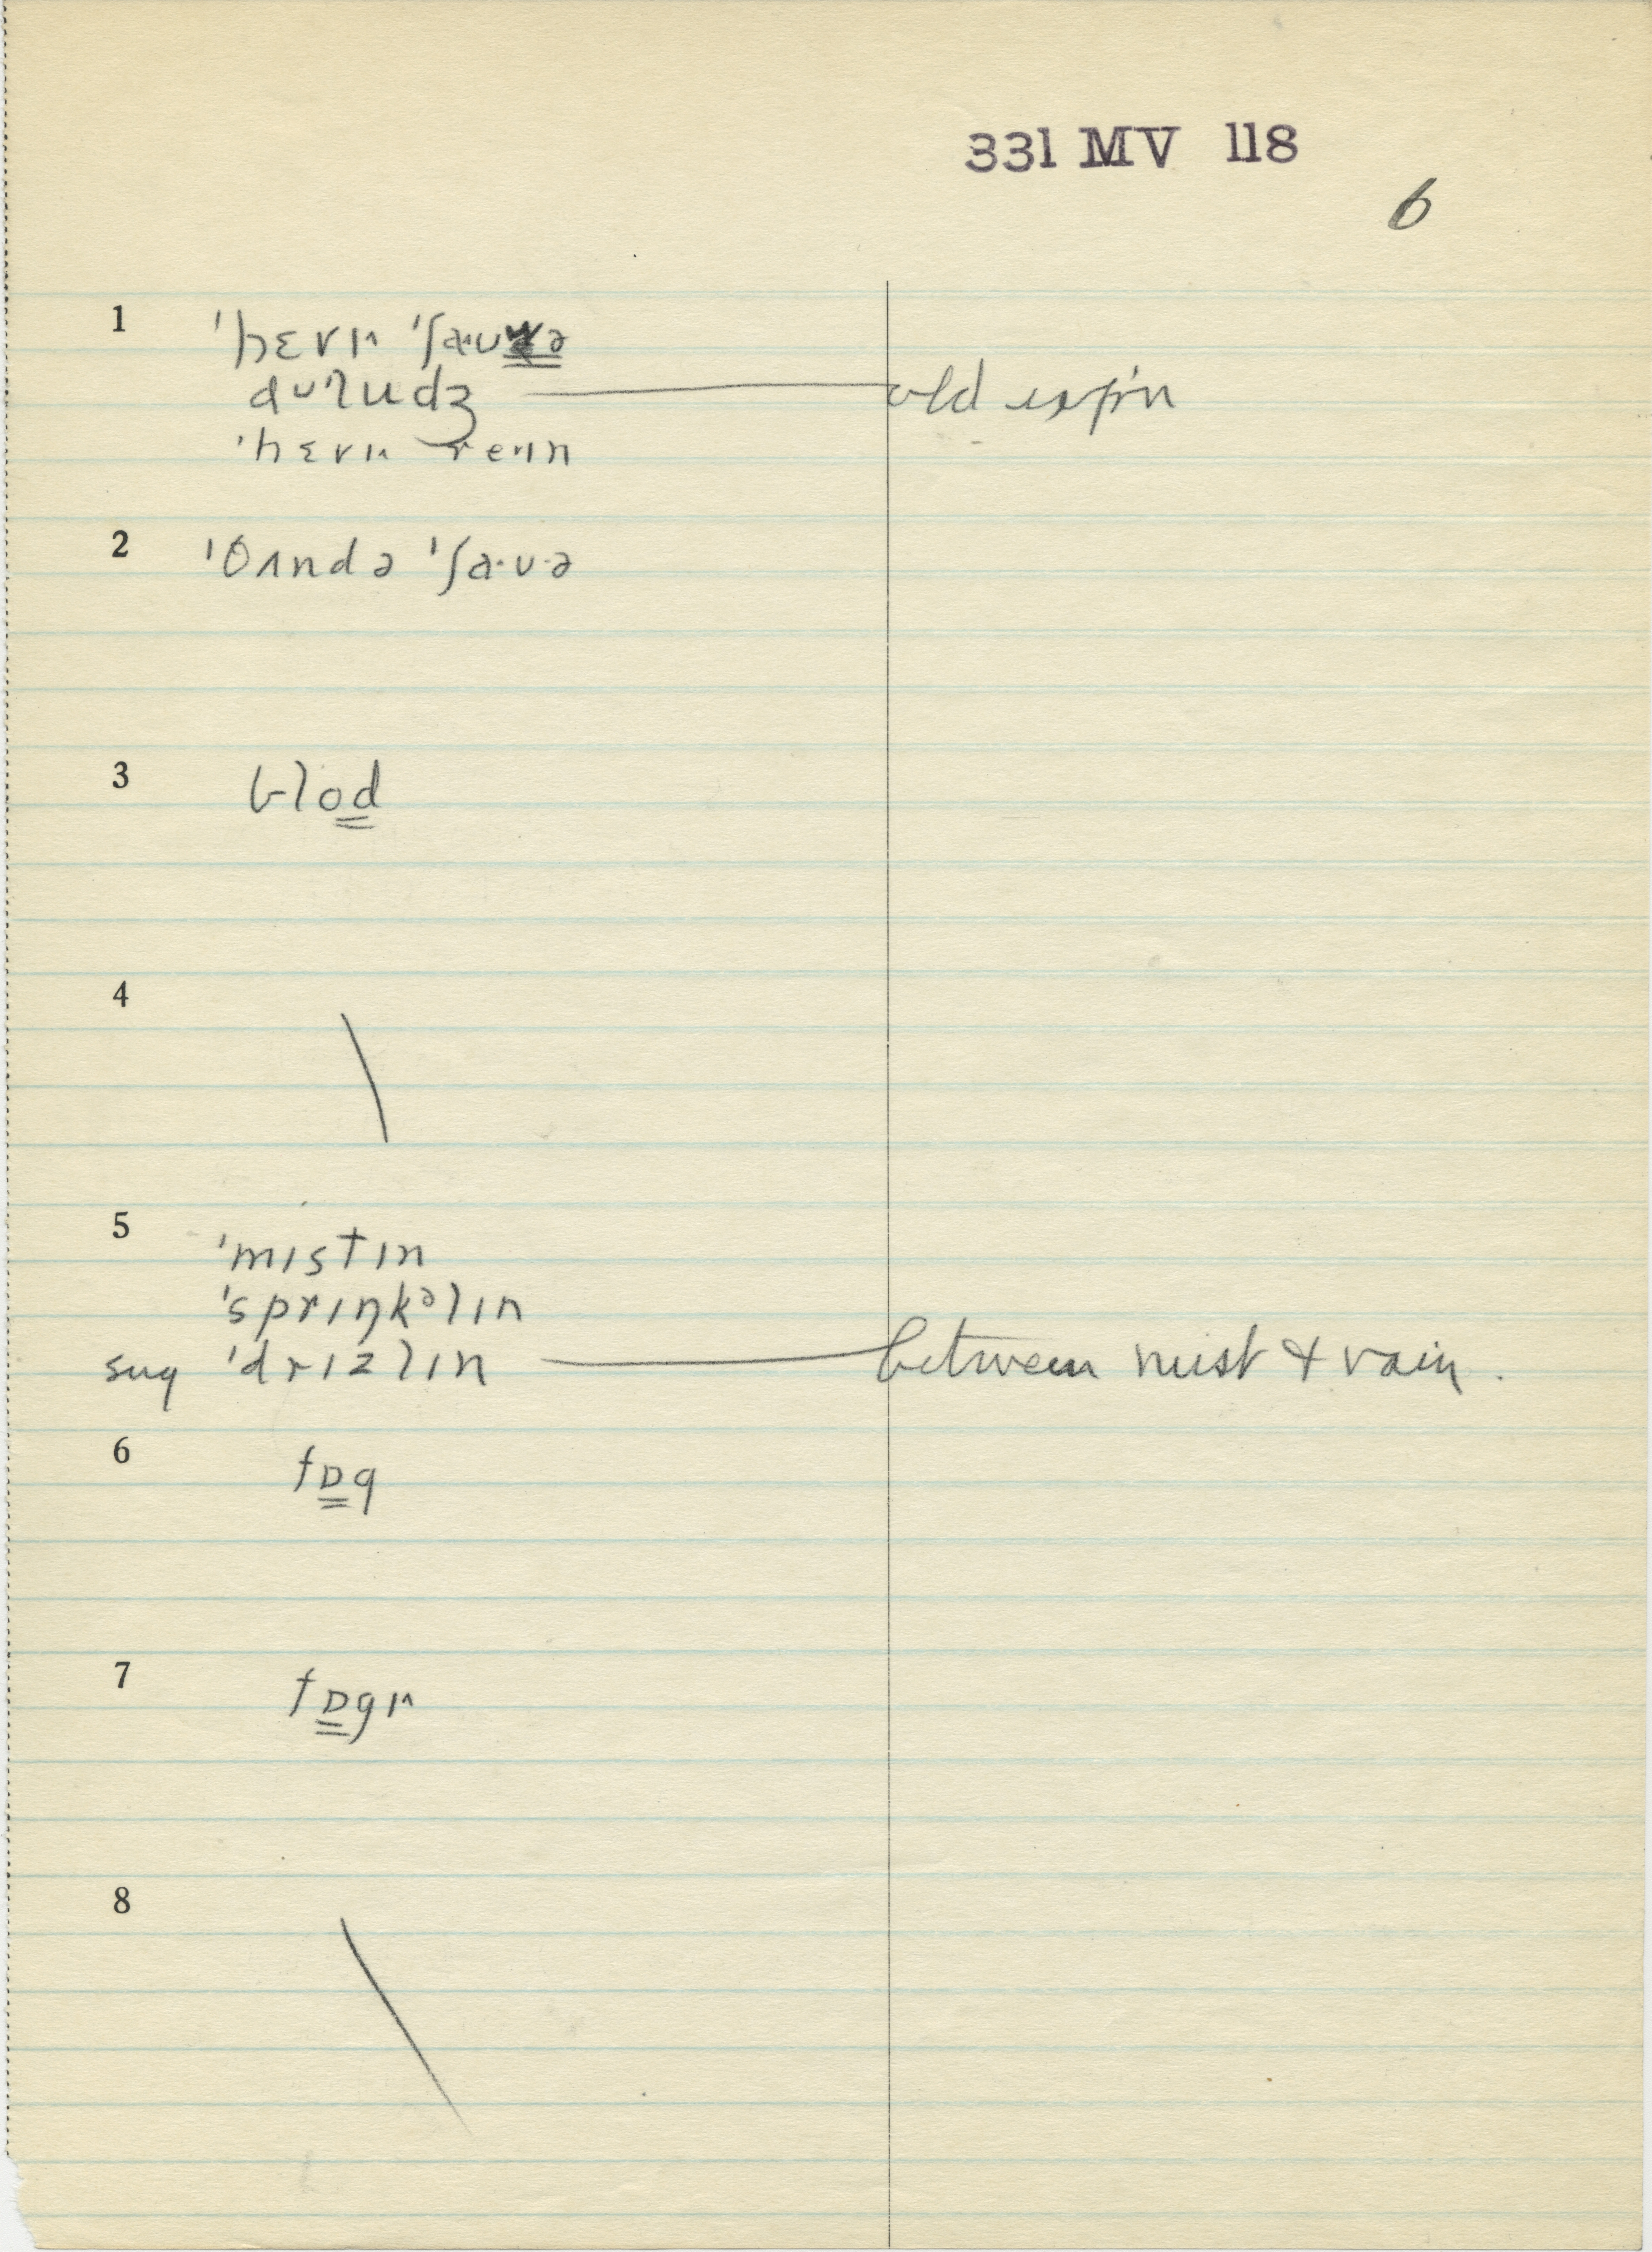 331 MV 118
6
1 ˈhɛvɪ ˈʃaʊə
dʌʊlʊdʒ old exp'n
ˈhɛvɪ reɪn
2 ˈθʌndə ˈʃa·ʊ·ə
3 flod
4
5 ˈmɪstɪn
ˈsprɪŋkəlɪn
sug ˈdrɪzlɪn between mist & rain.
6 fɒg
7 fɒgɪ
8